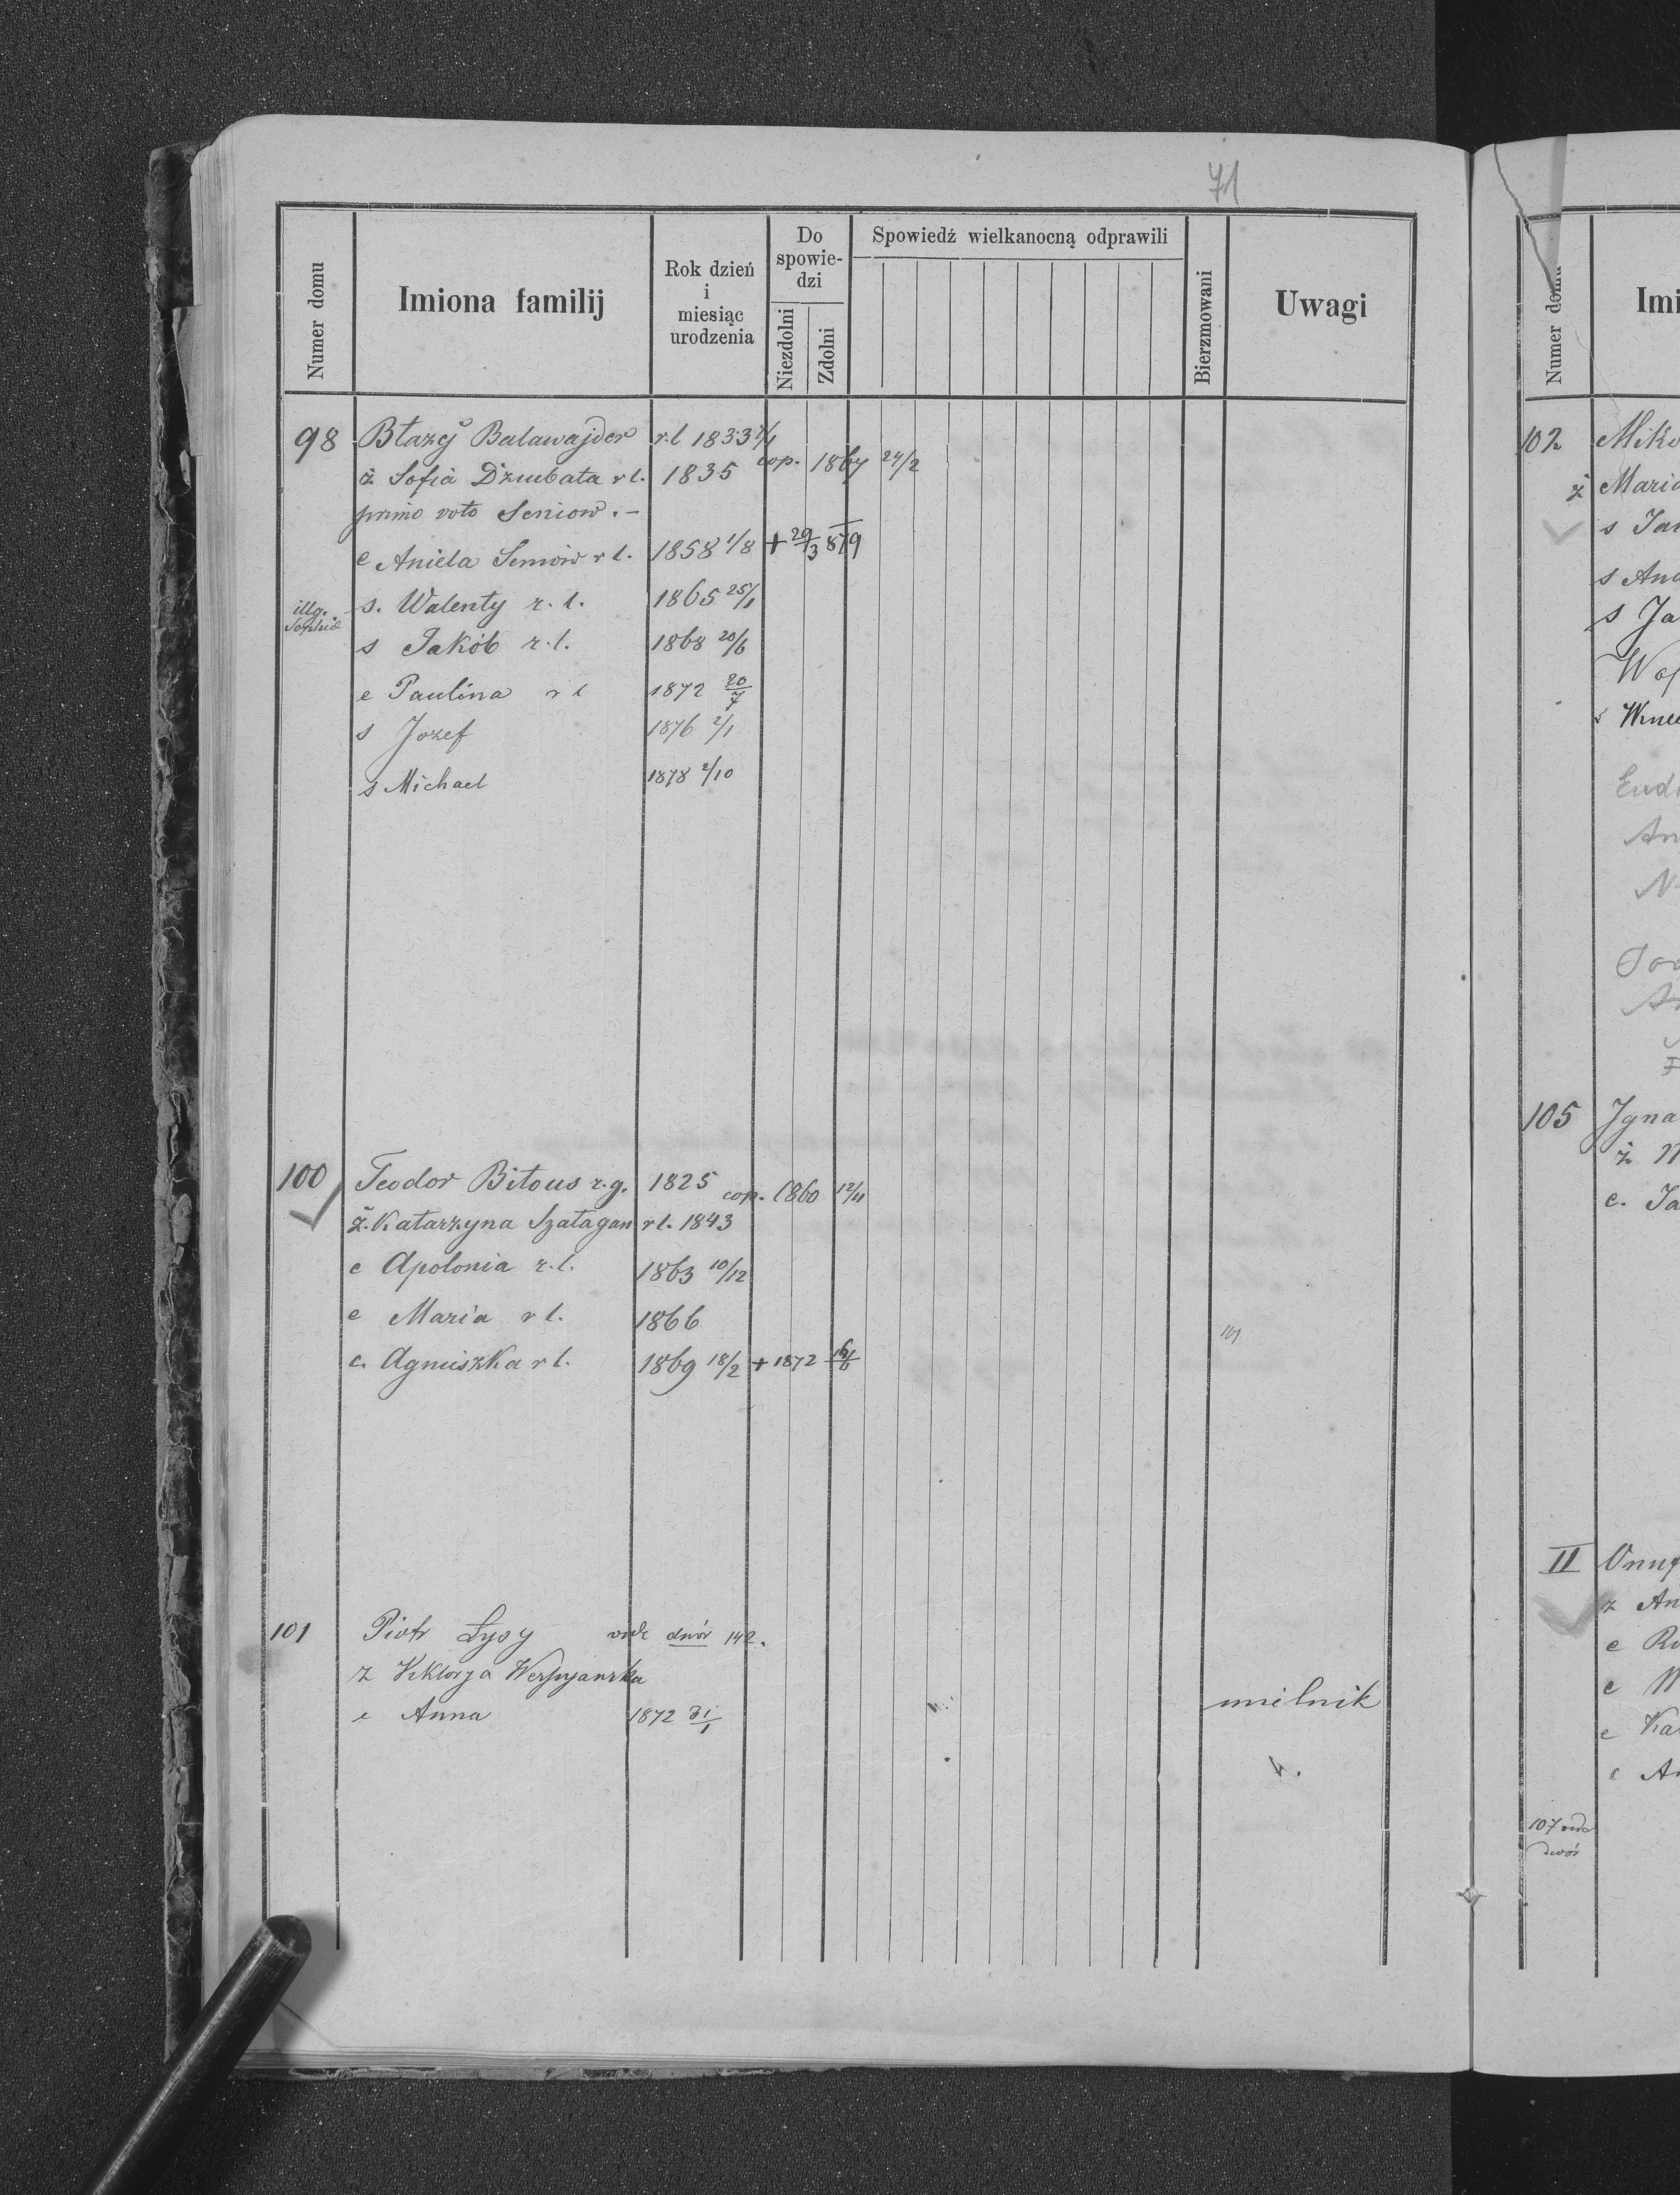 71
Numer domu
Imiona familij
Rok dzień
i
miesiąc
urodzenia
Do
spowie-
dzi
Niezdolni
Zdolni
Spowiedź wielkanocną odprawili
Bierzmowani
Uwagi
98 Błazej Balawajder r.l 1833 2/1
ż Sofia Dziubata r l. 1835 cop. 1867 24/2
primo voto Seniow. -
c Aniela Seniów r l. 1858 1/8 + 29/3 879
illg. Sophiæ s. Walenty r. l. 1865 25/1
s Jakób r. l. 1868 20/6
c Paulina r l 1872 20/7
s Jozef 1876 2/1
s Michael 1878 2/10
100 Teodor Bitous r. g. 1825 cop. 1860 12/11
ż. Katarzyna Szatagan r l. 1843
c Apolonia r. l. 1863 10/12
c Maria r l. 1866
c. Agniszka r l. 1869 18/2 + 1872 16/6
101
101 Piotr Łysy vide dwór 142.
ż Viktorja
c Anna 1872 31/1
milnik
Numer domu
Imi
102 Miko
ż Maria
s Jan
s And
s Ja
Woj
s
Eud
An
105 Igna
ż
c. Ja
II Onuf
ż An
c
c M
c Ka
c An
107 vide
dwór